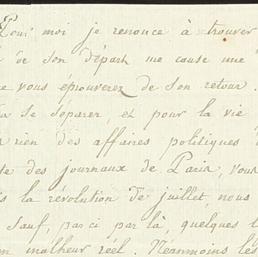 Pour moi je renonce à trouver
or son départ me cause une
e vous éprouverez de son retour.
la se separer, et pour la vie
a rien des affaires politiques d
te des journaux de Paris, vous
is la révolution de juillet, nous
sauf, par ci par là, quelques l
n malheur réel. Néanmoins les